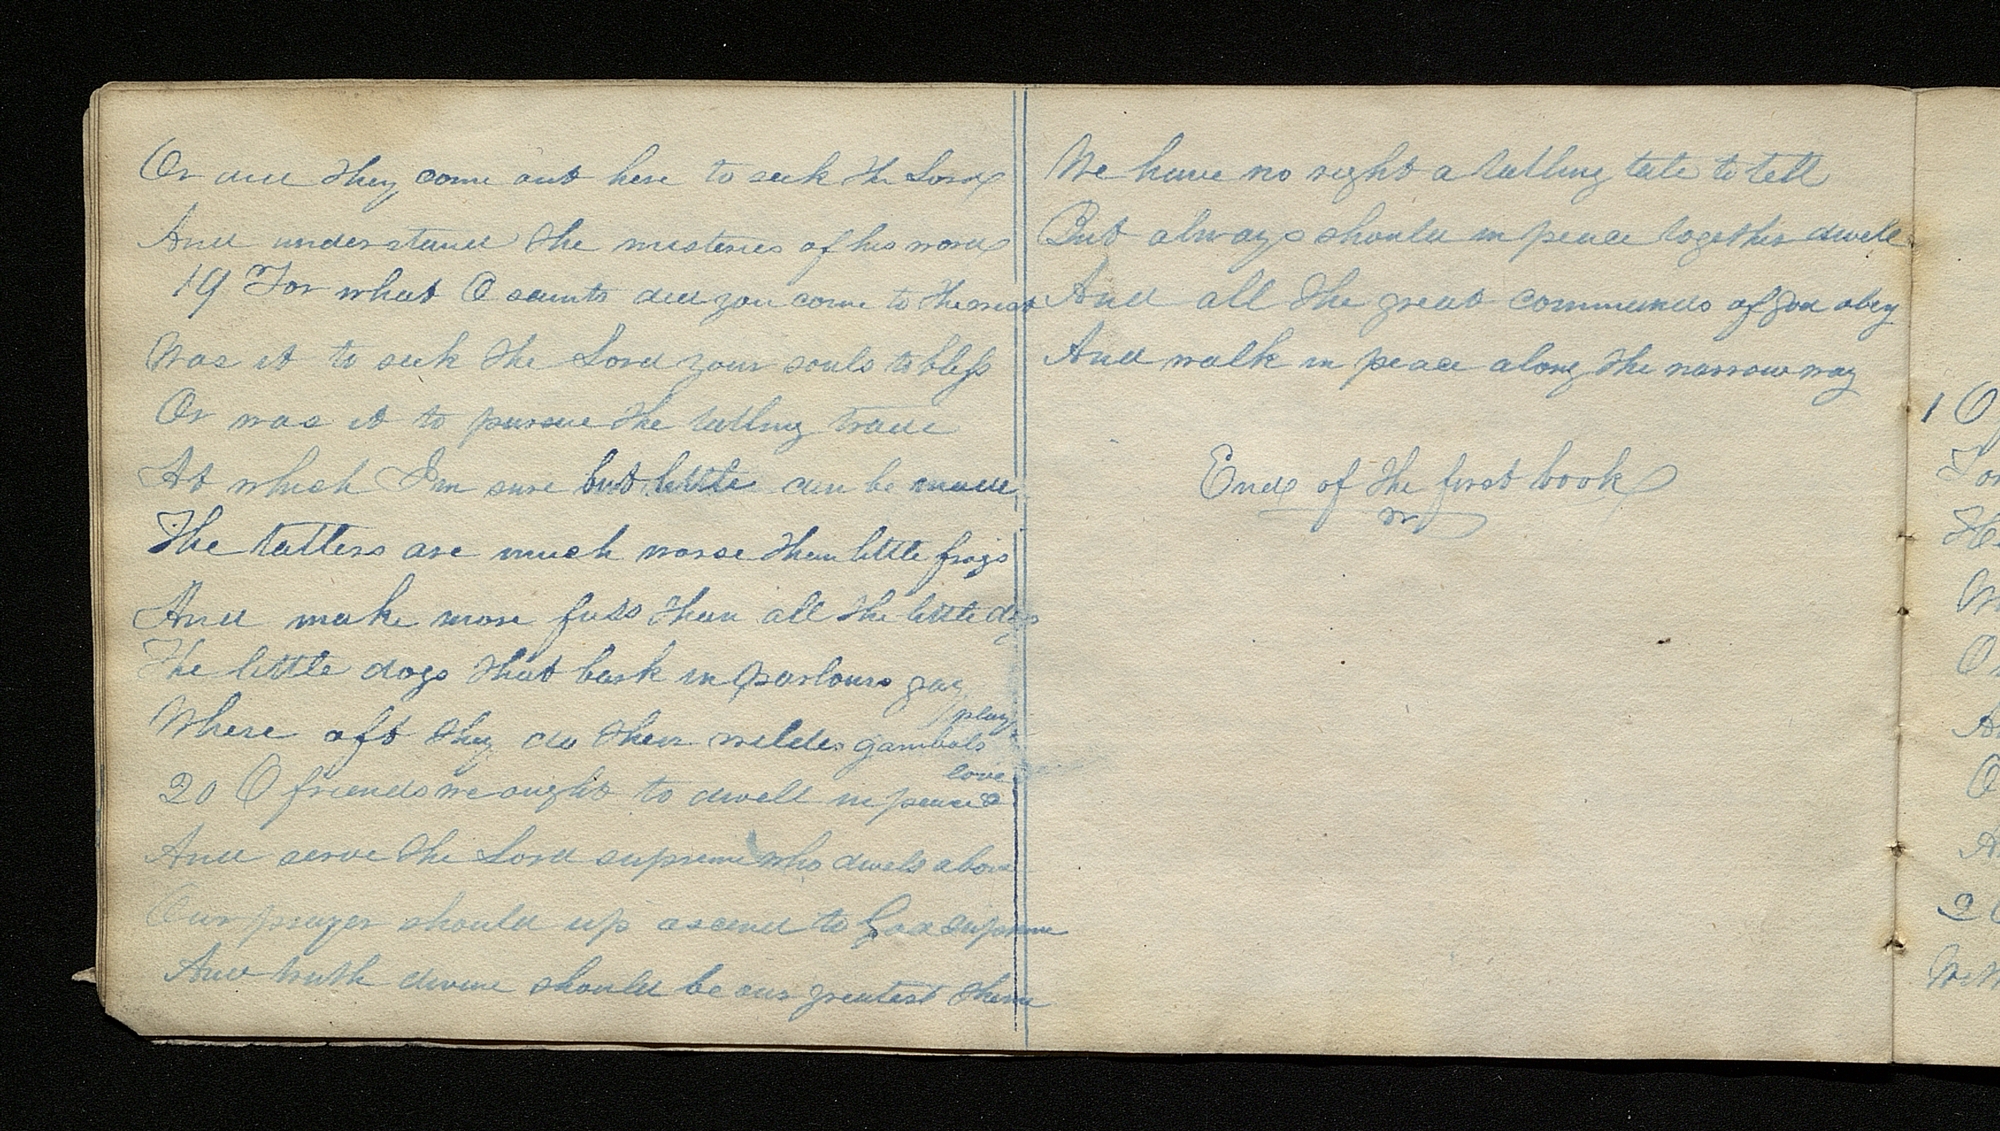 Or did they come out here to seek the Lord
And understand the misteries of his word
19 For what O saints did you come to the west
Was it to seek the Lord your souls to bless
Or was it to pursue the tatling trade
At which I'm sure but little can be made
The tatlers are much worse than little frogs
And make more fuss than all the little dogs
The little dogs that bark in parlours gay
Where oft they do their wildes gambols play
20 O friends we ought to dwell in peace & love
And serve the Lord supreme who dwels above
Our prayer should up ascend to God supreme
And truth divine should be our greatest theme
We have no right a tatling tale to tell
But always should in peace together dwell
And all the great commands of God obey
And walk in peace along the narrow way
End of the first book
1 O
For
He
2